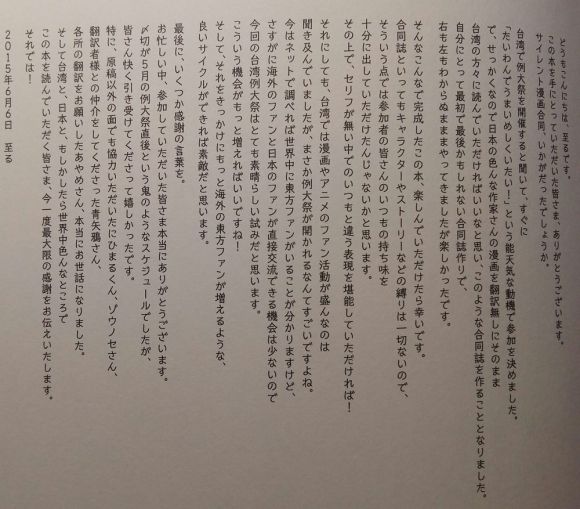 どうもこんにちは、至るです。
この本を手にとっていただいた皆さま、ありがとうございます。
サイレント漫画合同、いかがだったでしょうか。
台湾で例大祭を開催すると聞いて、すぐに
「たいわんでうまいめしくいたい！」という能天気な動機で参加を決めました。
で、せっかくなので日本の色んな作家さんの漫画を翻訳無しにそのまま
台湾の方々に読んでいただければいいなと思い、このような合同誌を作ることとなりました。
自分にとって最初で最後かもしれない合同誌作りで、
右も左もわからぬまままやってきましたが楽しかったです。
そんなこんなで完成したこの本、楽しんでいただけたら幸いです。
合同誌といってもキャラクターやストーリーなどの縛りは一切ないので、
そういう点では参加者の皆さんのいつもの持ち味を
十分に出していただけたんじゃないかと思います。
その上で、セリフが無い中でのいつもと違う表現を堪能していただければ！
それにしても、台湾では漫画やアニメのファン活動が盛んなのは
聞き及んでいましたが、まさか例大祭が開かれるなんてすごいですよね。
今はネットで調べれば世界中に東方ファンがいることが分かりますけど、
さすがに海外のファンと日本のファンが直接交流できる機会は少ないので
今回の台湾例大祭はとても素晴らしい試みだと思います。
こういう機会がもっと増えればいいですね！
そして、それをきっかけにもっと海外の東方ファンが増えるような、
良いサイクルができれば素敵だと思います。
最後に、いくつか感謝の言葉を。
お忙しい中、参加していただいた皆さま本当にありがとうございます。
〆切が５月の例大祭直後という鬼のようなスケジュールでしたが、
皆さん快く引き受けてくださって嬉しかったです。
特に、原稿以外の面でも協力いただいたひまるくん、ゾウノセさん、
翻訳者様との仲介をしてくださった青矢鴉さん、
各所の翻訳をお願いしたあやめさん、本当にお世話になりました。
そして台湾と、日本と、もしかしたら世界中色んなところで
この本を読んでいただく皆さま、今一度最大限の感謝をお伝えいたします。
それでは！
２０１５年６月６日　至る